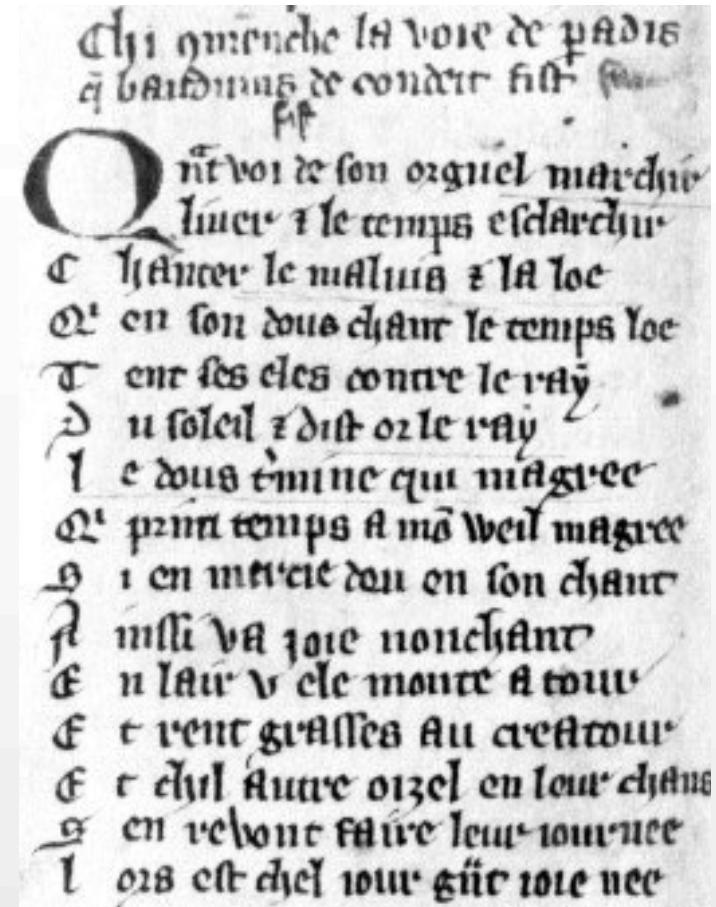 Chi 9mēnche la voie de pradis
q̄ bauduins de condeit fist
fist
Qnͣt voi de son orguel marchir
liuer ⁊ le temps esclarchir
Chanter le maluis ⁊ la loe
Qͥ en son dous chant le temps loe
Tent ses eles contre le ray
Du soleil ⁊ dist or le ray
le dous tͥmine qui magree
Qͥ prim temps a mō weil magree
Si en mercie deu en son chant
Ainssi va joie nonchant
En lair v ele monte a tour
Et rent grasses au creatour
Et chil autre oizel en leur chans
Sen revont faire leur iournee
lors est chel iour gn̄t ioie nee